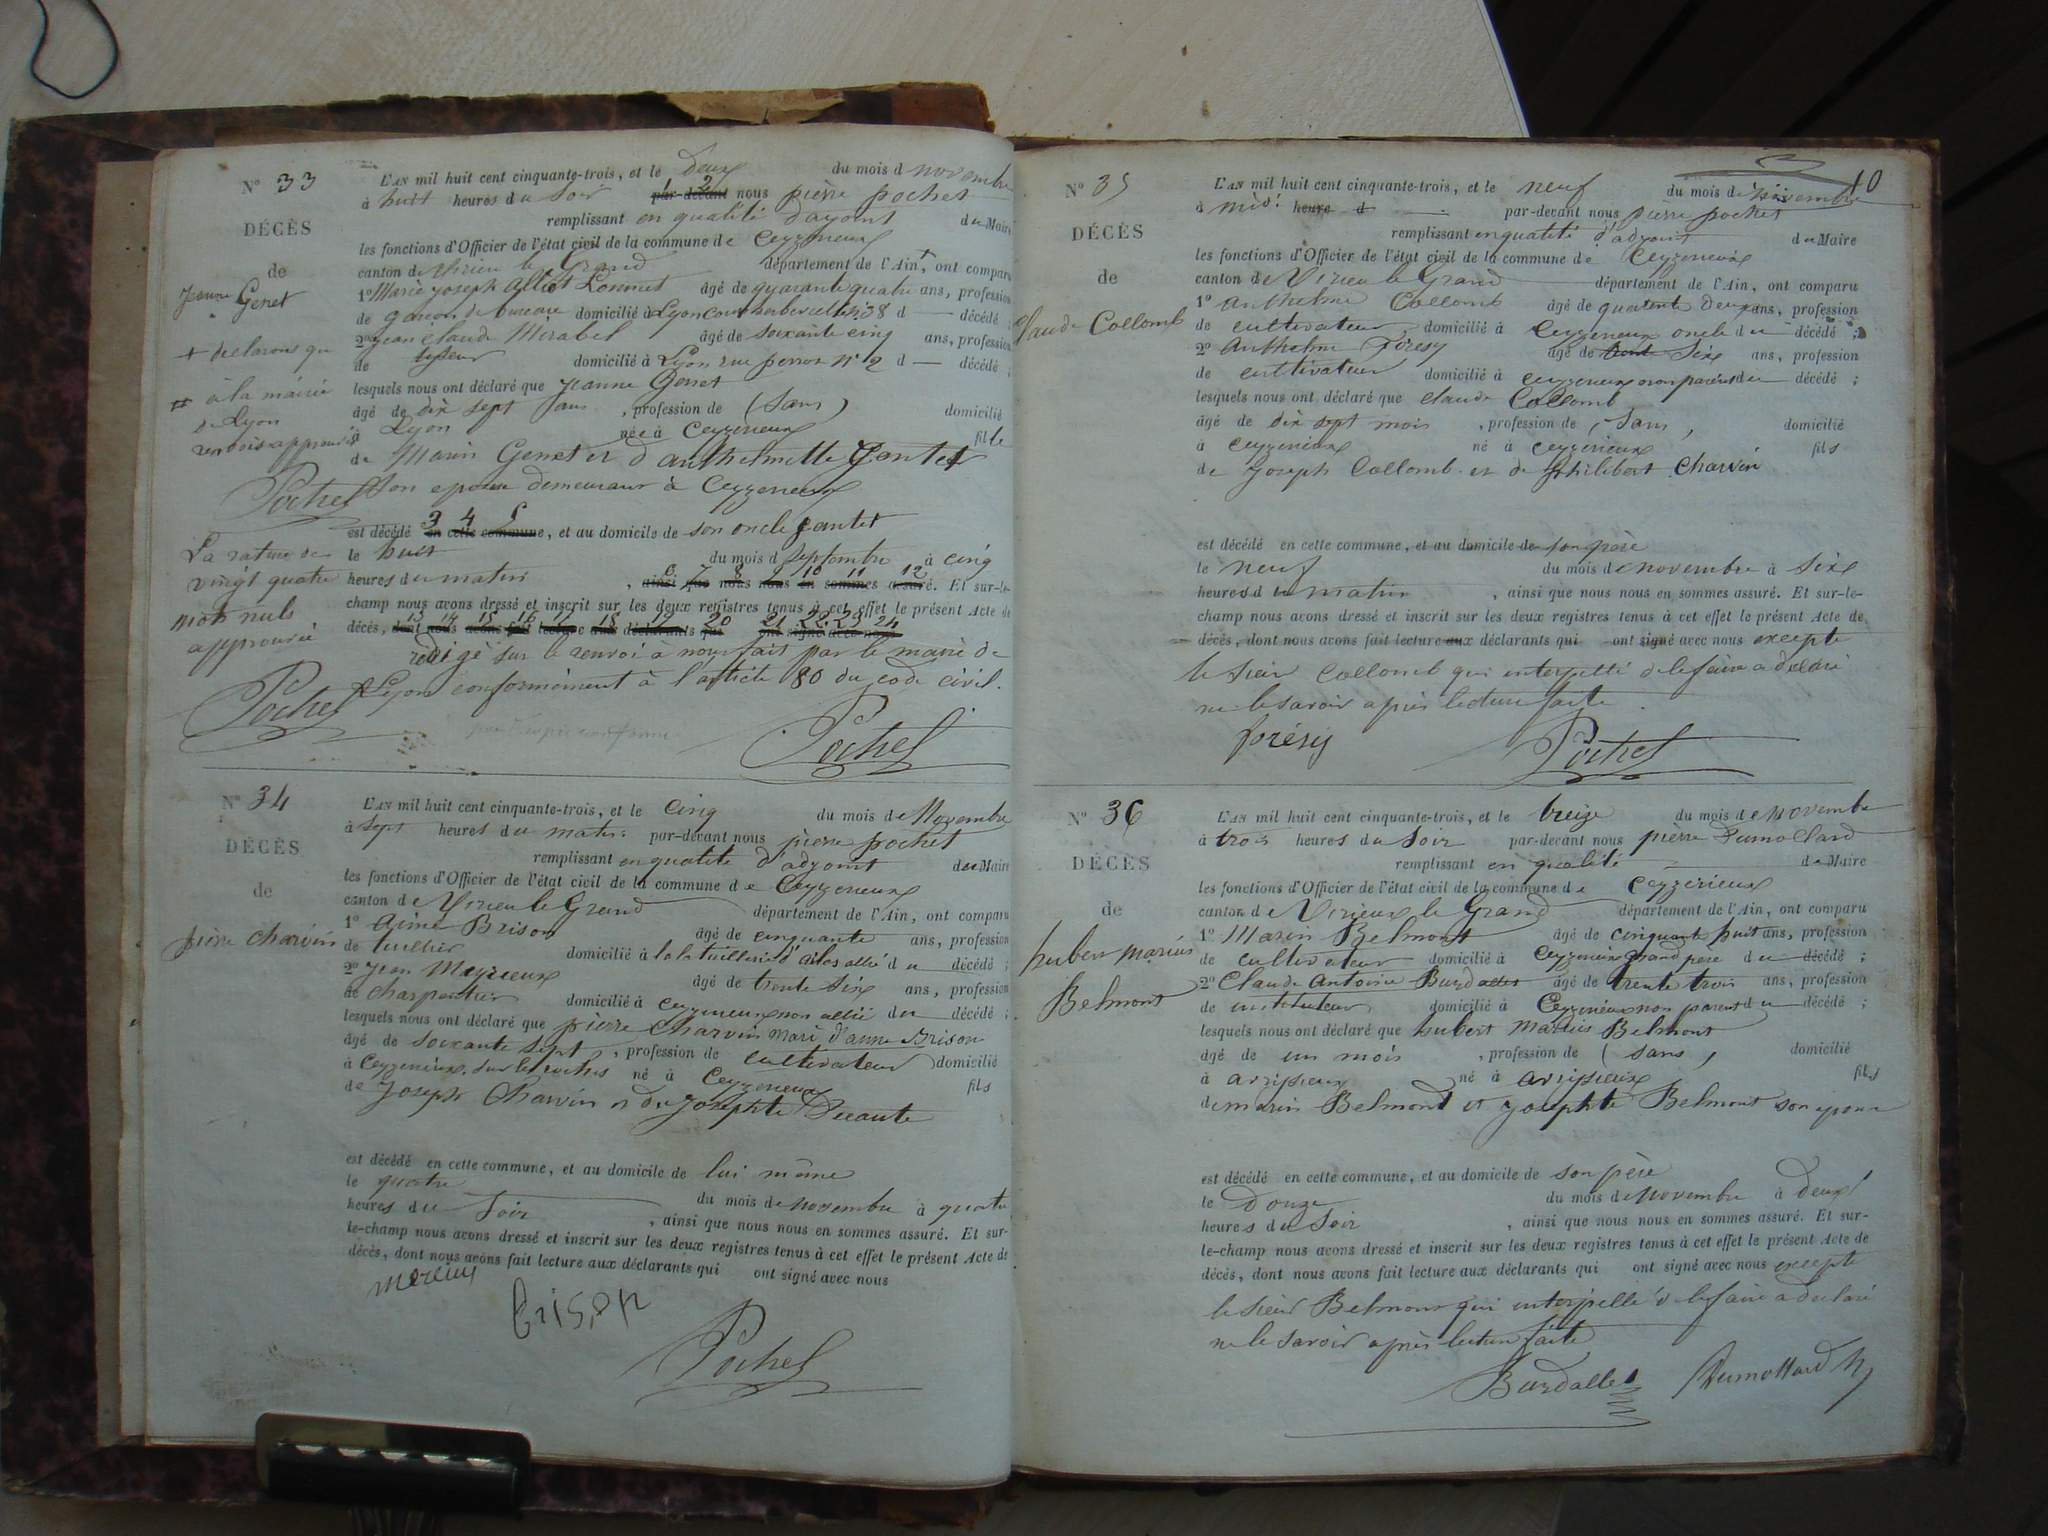 N° 33
DÉCÈS
de
Jeanne Genet
+ declarons que
# à la mairie
de Lyon
renvois approuvés
Pochet
La rature de
vingt quatre
mots nuls
approuvée
Pochet
L'AN mil huit cent cinquante-trois, et le deux du mois d novembre
à huit heures du soir 1 2 par-devant nous pierre pochet
remplissant en qualité d'adjoint du Maire
les fonctions d'Officier de l'état civil de la commune de Ceyzerieux
canton de Virieu le Grand département de l'Ain +, ont comparu
1° Marie joseph Lommet âgé de quarante quatre ans, profession
de garçon de bureau domicilié à Lyon cour n° 38 d — décédé ;
2° jean claude Mirabel âgé de soixante cinq ans, profession
de domicilié à Lyon rue perron n° 2 d — décédé ;
lesquels nous ont déclaré que Jeanne Genet
âgé de dix sept ans, profession de (sans) domicilié
à Lyon née à Ceyzerieux fille
de Marin Genet et d'anthelmette Gantet
son epouse demeurant à Ceyzerieux
est décédé 3 4 5 en cette commune, et au domicile de son oncle gantet
le huit du mois d septembre à cinq
heures du matin, 6 7 8 9 10 11 12 ainsi que nous nous en sommes assuré. Et sur-le-
champ nous avons dressé et inscrit sur les deux registres tenus à cet effet le présent Acte de
décès, 13 14 15 16 17 18 19 20 21 22 23 24 dont nous avons fait lecture aux déclarants qui ont signé avec nous
redigé sur le renvoi a nous fait par le maire de
Lyon conformément à l'article 80 du code civil.
Pochet
N° 34
DÉCÈS
de
pierre charvin
L'AN mil huit cent cinquante-trois, et le cinq du mois de Novembre
à sept heures du matin par-devant nous pierre pochet
remplissant en qualité d'adjoint du Maire
les fonctions d'Officier de l'état civil de la commune de Ceyzerieux
canton de Virieu le Grand département de l'Ain, ont comparu
1° Aimé Brison âgé de cinquante ans, profession
de tuillier domicilié à la tuillerie d'ailes allié du décédé ;
2° Jean Meyrieux âgé de trente six ans, profession
de charpentier domicilié à ceyzerieux non allié du décédé ;
lesquels nous ont déclaré que pierre Charvin mari d'anne Brison
âgé de soixante sept, profession de cultivateur domicilié
à Ceyzerieux, sur les roches né à Ceyzerieux fils
de Joseph Charvin et de josephte Decante
est décédé en cette commune, et au domicile de lui même
le quatre du mois de novembre à quatre
heures du soir, ainsi que nous nous en sommes assuré. Et sur-
le-champ nous avons dressé et inscrit sur les deux registres tenus à cet effet le présent Acte de
décès, dont nous avons fait lecture aux déclarants qui ont signé avec nous
Brison
Pochet
10
N° 35
DÉCÈS
de
Claude Collomb
L'AN mil huit cent cinquante-trois, et le neuf du mois de novembre
à midi heure d — par-devant nous pierre pochet
remplissant en qualité d'adjoint du Maire
les fonctions d'Officier de l'état civil de la commune de Ceyzerieux
canton de Virieu le Grand département de l'Ain, ont comparu
1° Anthelme Collomb âgé de quarante deux ans, profession
de cultivateur, domicilié à Ceyzerieux oncle du décédé ;
2° Anthelme Forésy âgé de trent six ans, profession
de cultivateur domicilié à ceyzerieux non parent du décédé ;
lesquels nous ont déclaré que claude Collomb
âgé de dix sept mois, profession de (sans) domicilié
à ceyzerieux né à ceyzerieux fils
de Joseph Collomb et de philibert Charvin
est décédé en cette commune, et au domicile de son père
le neuf du mois de novembre à six
heures du matin, ainsi que nous nous en sommes assuré. Et sur-le-
champ nous avons dressé et inscrit sur les deux registres tenus à cet effet le présent Acte de
décès, dont nous avons fait lecture aux déclarants qui ont signé avec nous excepté
le sieur Collomb qui interpellé de le faire a declaré
ne le savoir après lecture faite.
forésy
Pochet
N° 36
DÉCÈS
de
hubert marius
Belmont
L'AN mil huit cent cinquante-trois, et le treize du mois de novembre
à trois heures du soir par-devant nous pierre Dumollard
remplissant en qualité de Maire
les fonctions d'Officier de l'état civil de la commune de Ceyzerieux
canton de Virieux le Grand département de l'Ain, ont comparu
1° Marin Belmont âgé de cinquante huit ans, profession
de cultivateur domicilié à Ceyzerieux grand pere du décédé ;
2° Claude Antoine Burdallet âgé de trente trois ans, profession
de instituteur domicilié à Ceyzerieux non parent du décédé ;
lesquels nous ont déclaré que hubert marius Belmont
âgé de un mois, profession de (sans) domicilié
à avrissieux né à avrissieux fils
de marin Belmont et josephte Belmont son epouse
est décédé en cette commune, et au domicile de son père
le Douze du mois de novembre à deux
heures du soir, ainsi que nous nous en sommes assuré. Et sur-
le-champ nous avons dressé et inscrit sur les deux registres tenus à cet effet le présent Acte de
décès, dont nous avons fait lecture aux déclarants qui ont signé avec nous excepté
le sieur Belmont qui interpellé de le faire a declaré
ne le savoir après lecture faite
Burdallet Dumollard